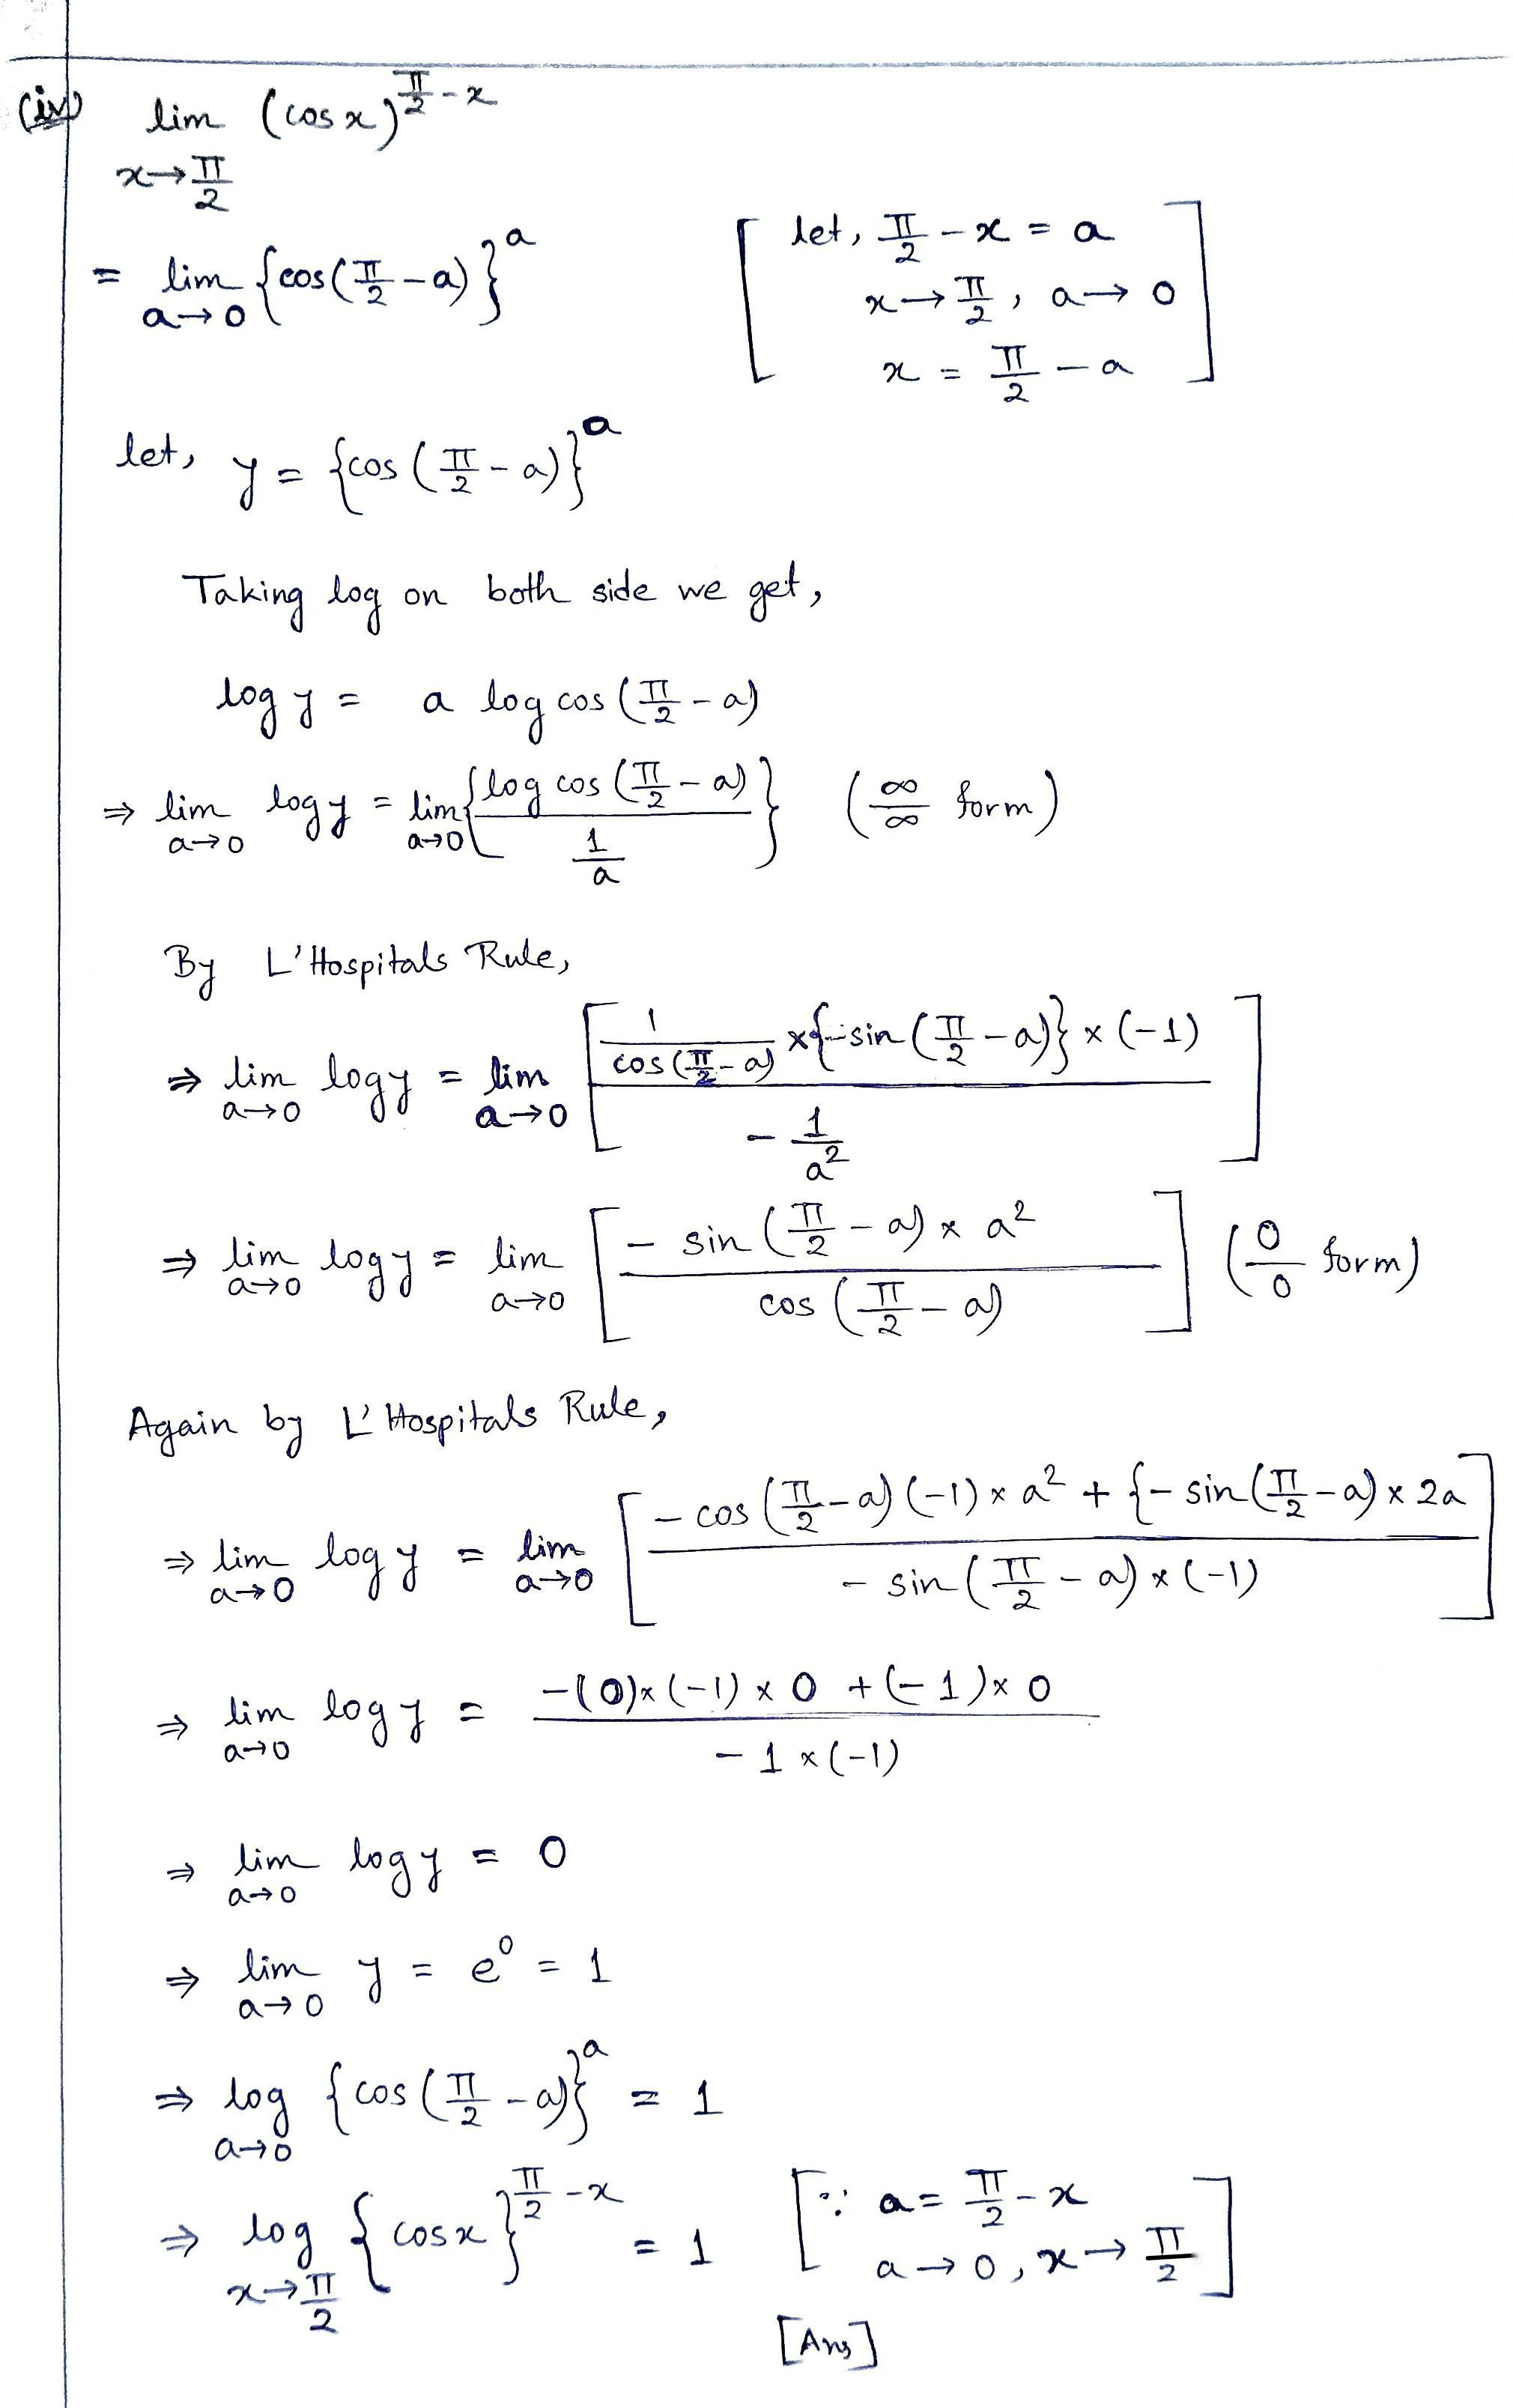 (iv) lim (cos x)^{π/2 - x}
x→π/2
= lim {cos(π/2 - a)}^a
a→0
[let, π/2 - x = a
x→π/2, a→0
x = π/2 - a]
let, y = {cos(π/2 - a)}^a
Taking log on both side we get,
log y = a log cos(π/2 - a)
⇒ lim_{a→0} log y = lim_{a→0} {log cos(π/2 - a) / (1/a)} (∞/∞ form)
By L'Hospitals Rule,
⇒ lim_{a→0} log y = lim_{a→0} [1/cos(π/2 - a) × {-sin(π/2 - a)} × (-1) / (-1/a²)]
⇒ lim_{a→0} log y = lim_{a→0} [- sin(π/2 - a) × a² / cos(π/2 - a)] (0/0 form)
Again by L'Hospitals Rule,
⇒ lim_{a→0} log y = lim_{a→0} [- cos(π/2 - a)(-1) × a² + {- sin(π/2 - a) × 2a / - sin(π/2 - a) × (-1)]
⇒ lim_{a→0} log y = -(0) × (-1) × 0 + (-1) × 0 / -1 × (-1)
⇒ lim_{a→0} log y = 0
⇒ lim_{a→0} y = e^0 = 1
⇒ log_{a→0} {cos(π/2 - a)}^a = 1
⇒ log_{x→π/2} {cos x}^{π/2 - x} = 1 [∵ a = π/2 - x
a→0, x→π/2]
[Ans]